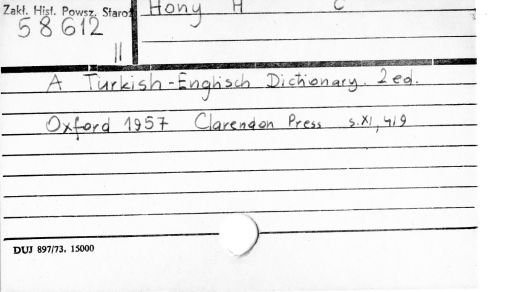 Zakł. Hist. Powsz. Staroż
Hony H C
58612
II
A Turkish-Englisch Dictionary. 2 ed.
Oxford 1957 Clarendon Press s. XI, 419
DUJ 897/73. 15000